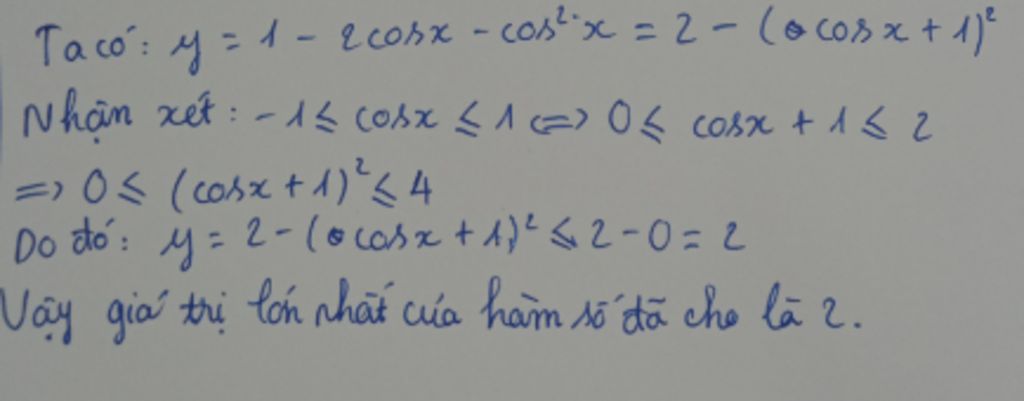 Ta có: y = 1 - 2cosx - cos²x = 2 - (cosx + 1)²
Nhận xét: -1 ≤ cosx ≤ 1 <=> 0 ≤ cosx + 1 ≤ 2
=> 0 ≤ (cosx + 1)² ≤ 4
Do đó: y = 2 - (cosx + 1)² ≤ 2 - 0 = 2
Vậy giá trị lớn nhất của hàm số đã cho là 2.